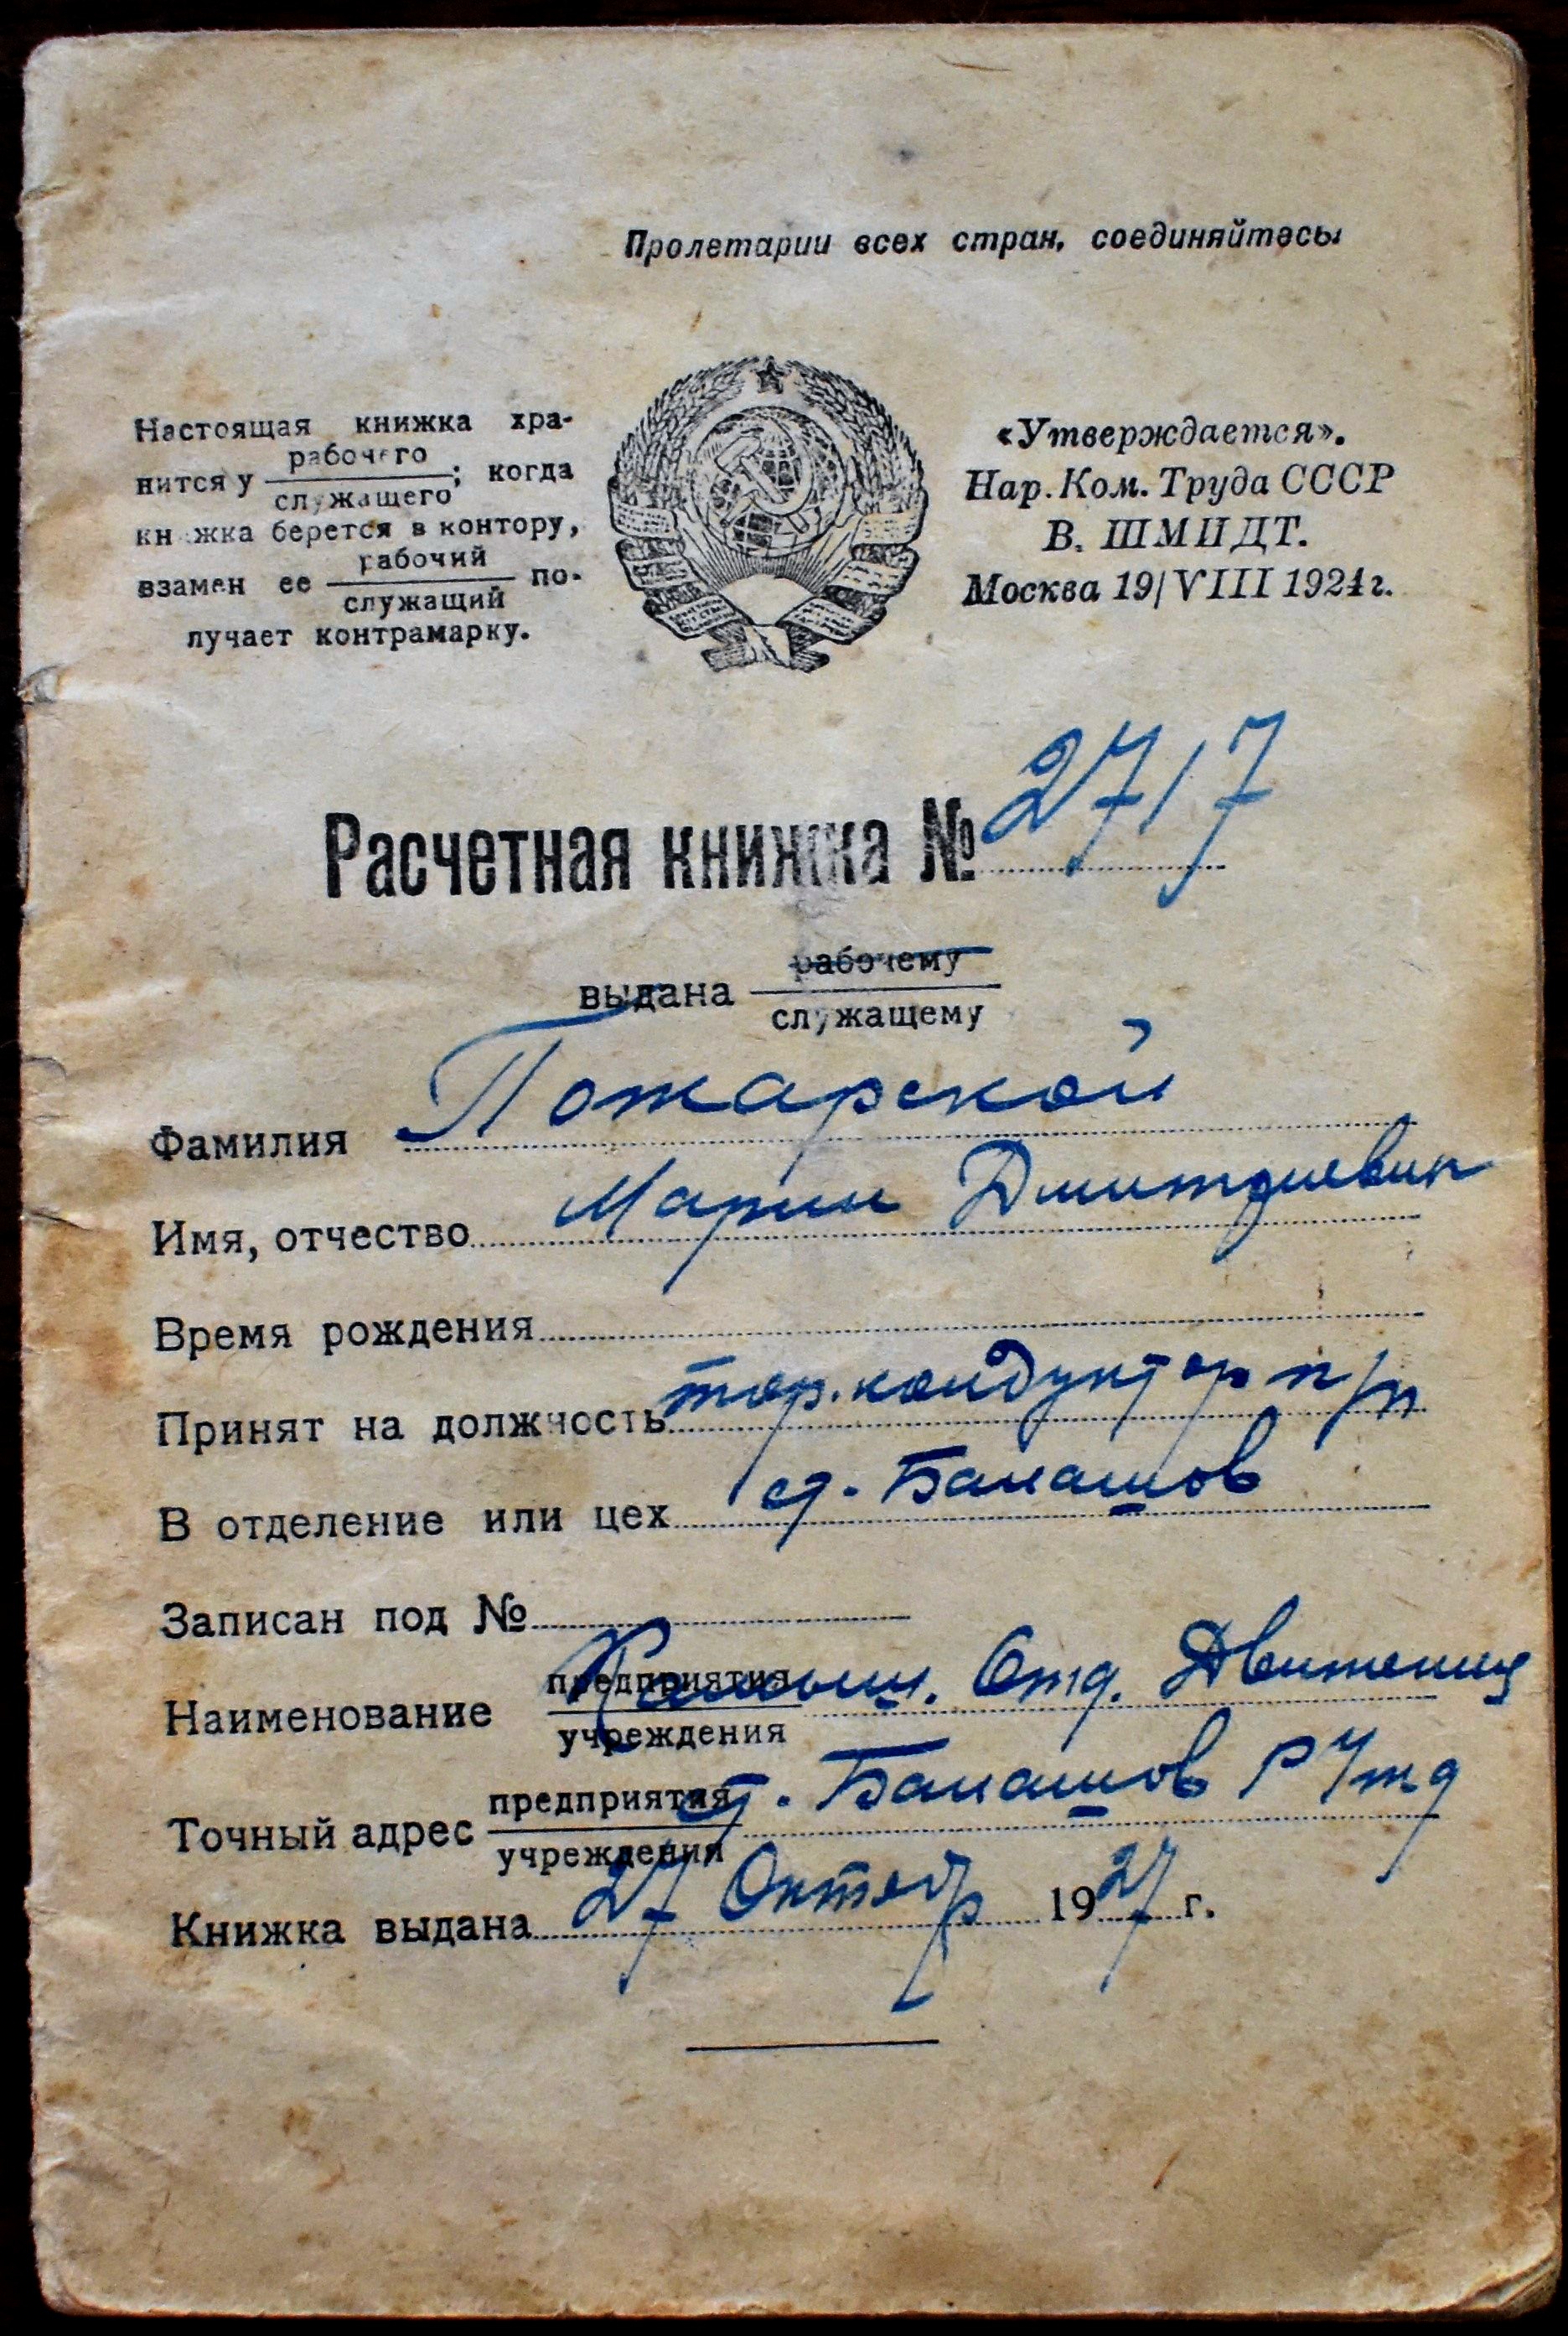 Пролетарии всех стран, соединяйтесь
Настоящая книжка хра-
нится у рабочего / служащего; когда
книжка берется в контору,
взамен ее рабочий / служащий по-
лучает контрамарку.
«Утверждается».
Нар. Ком. Труда СССР
В. ШМИДТ.
Москва 19/VIII 1924 г.
Расчетная книжка № 2717
выдана рабочему / служащему
Фамилия Пожарской
Имя, отчество Марии Дмитриевн
Время рождения
Принят на должность тор. кондуктор п/п
В отделение или цех ст. Балашов
Записан под №
Наименование предприятия / учреждения Камыш. Отд. Движения
Точный адрес предприятия / учреждения ст. Балашов
Книжка выдана 27 Октябр 1927 г.